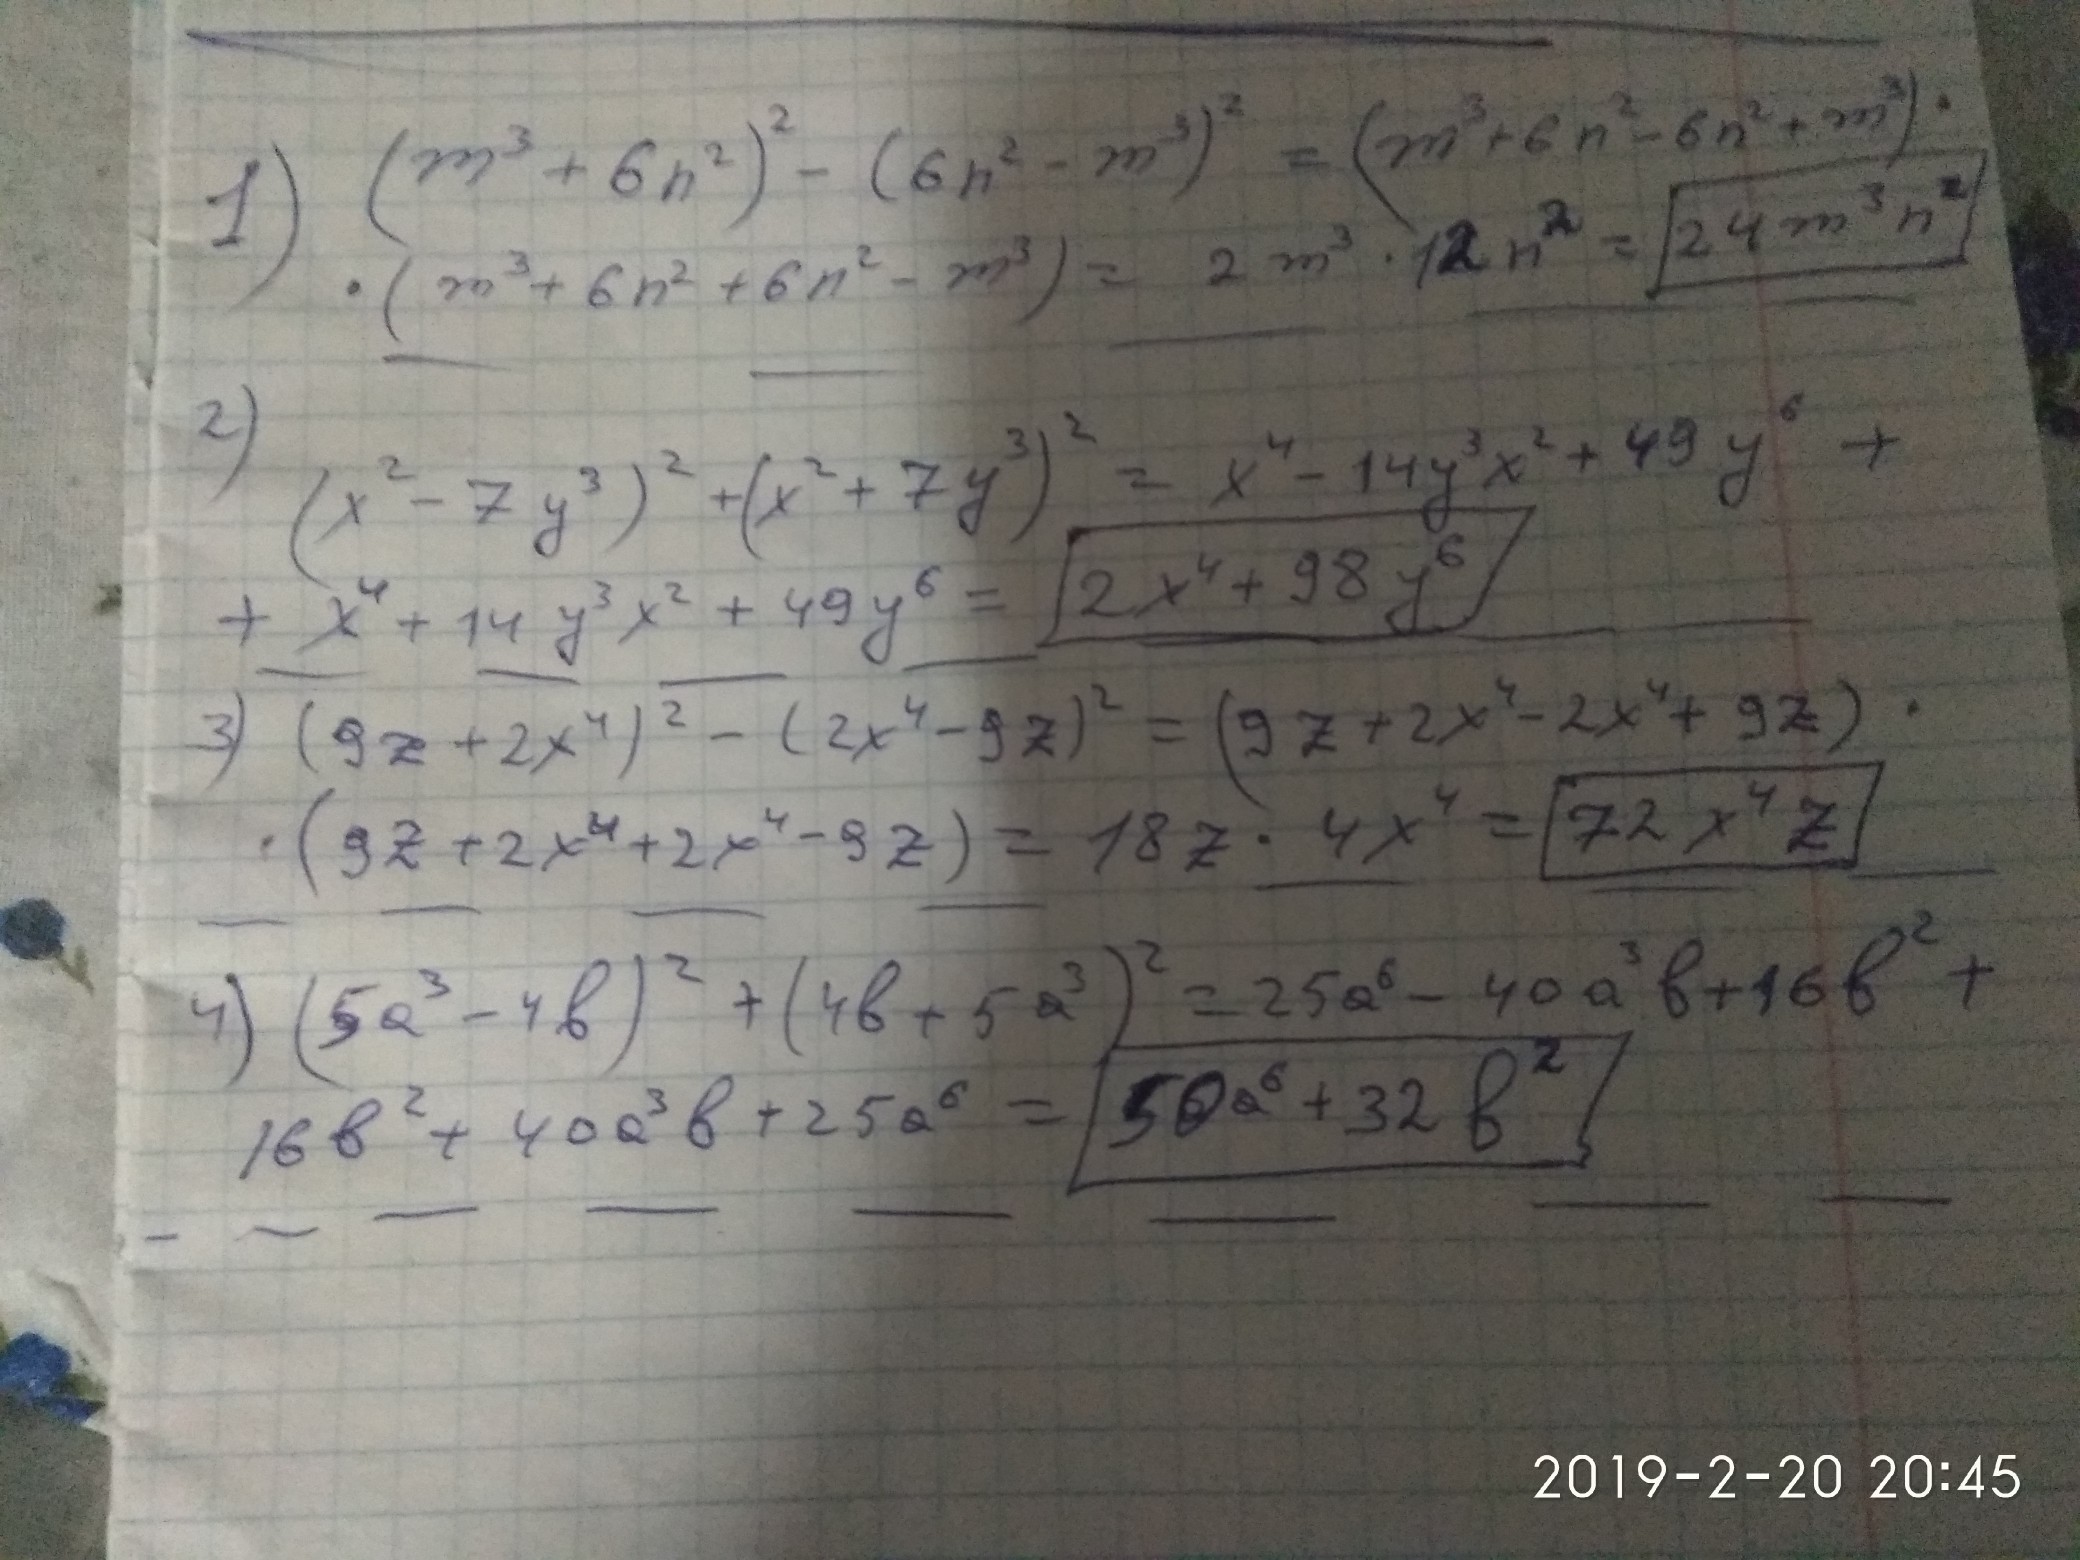 1) (m³ + 6n²)² - (6n² - m³)² = (m³ + 6n² - 6n² + m³) ·
· (m³ + 6n² + 6n² - m³) = 2m³ · 12n² = 24m³n²
2)
(x² - 7y³)² + (x² + 7y³)² = x⁴ - 14y³x² + 49y⁶ +
+ x⁴ + 14y³x² + 49y⁶ = 2x⁴ + 98y⁶
3) (9z + 2x⁴)² - (2x⁴ - 9z)² = (9z + 2x⁴ - 2x⁴ + 9z) ·
· (9z + 2x⁴ + 2x⁴ - 9z) = 18z · 4x⁴ = 72x⁴z
4) (5a³ - 4b)² + (4b + 5a³)² = 25a⁶ - 40a³b + 16b² +
16b² + 40a³b + 25a⁶ = 50a⁶ + 32b²
2019-2-20 20:45